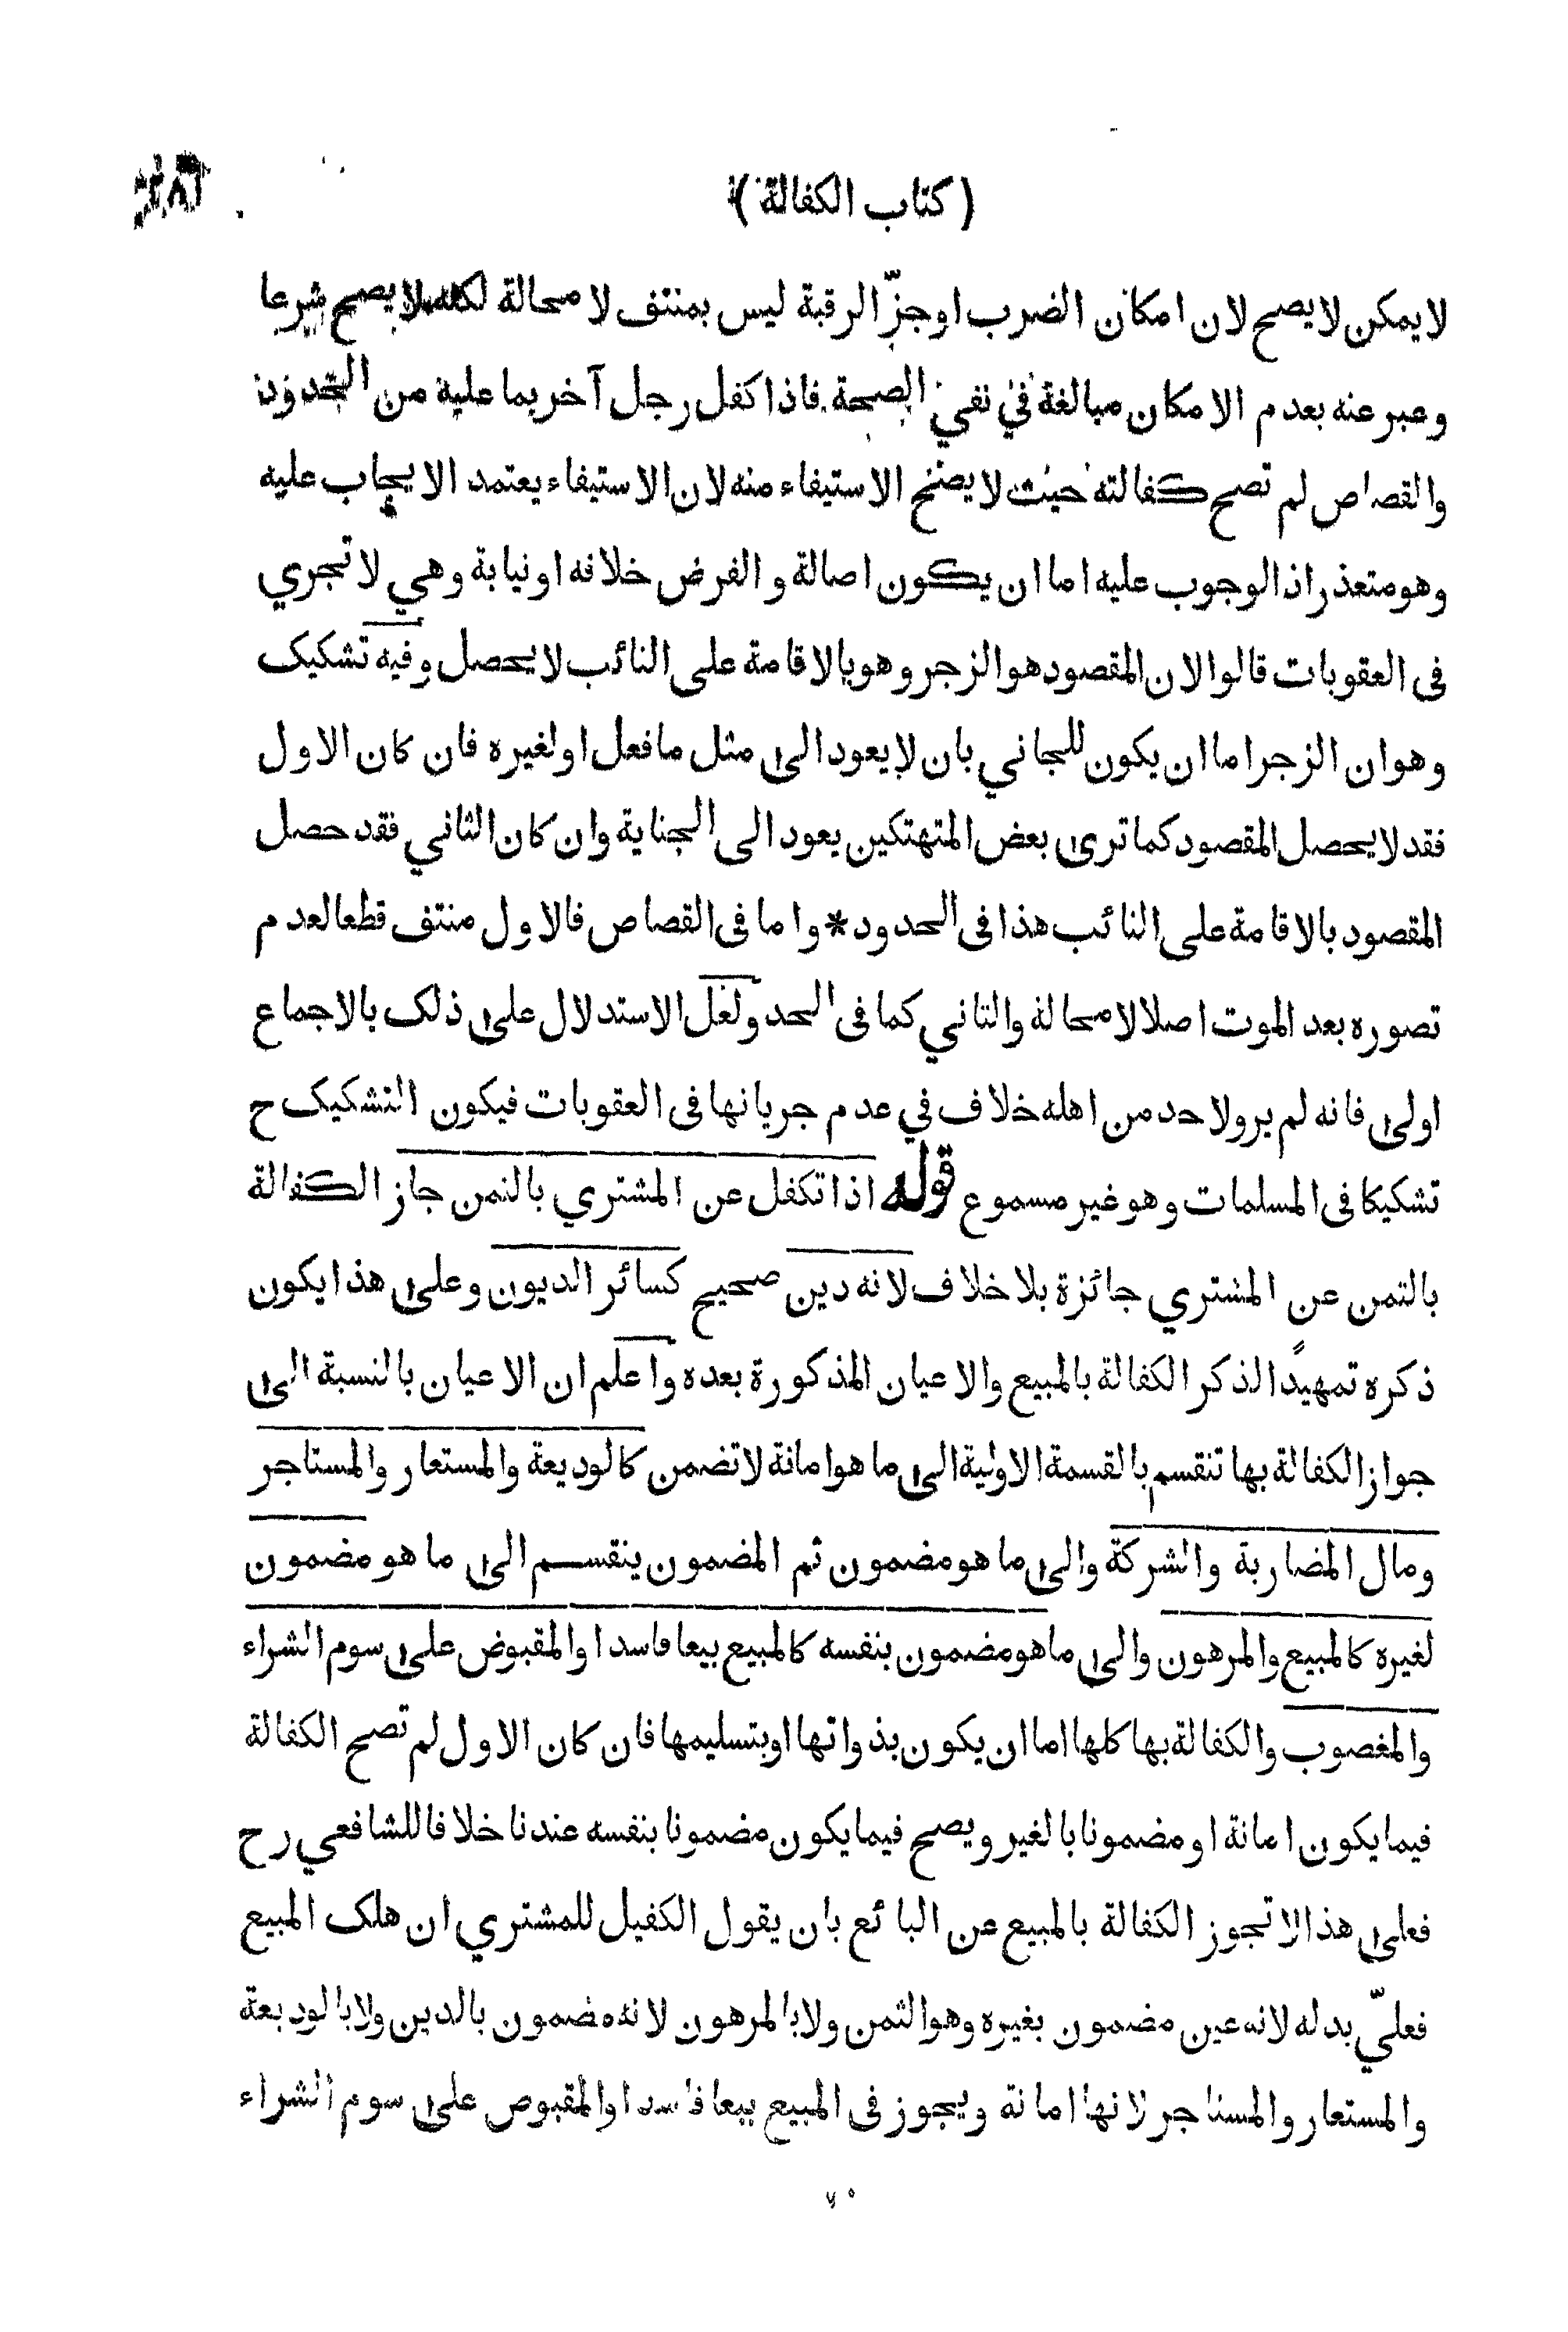 ( كتاب الكفالة )
لا يمكن لا يصح لان امكان الضرب او جزّ الرقبة ليس بمنتف لا محالة لكنه لا يصح شرعا
وعبر عنه بعدم الامكان مبالغة في نفي الصحة فاذا كفل رجل آخر بما عليه من الحدود
والقصاص لم تصح كفالته حيث لا يصح الاستيفاء منه لان الاستيفاء يعتمد الايجاب عليه
وهو متعذر اذ الوجوب عليه اما ان يكون اصالة والفرض خلافه او نيابة وهي لا تجري
فى العقوبات قالوا لان المقصود هو الزجر وهو بالاقامة على النائب لا يحصل وفيه تشكيك
وهو ان الزجر اما ان يكون للجاني بان لا يعود الى مثل ما فعل او لغيره فان كان الاول
فقد لا يحصل المقصود كما ترى بعض المتهتكين يعود الى الجناية وان كان الثاني فقد حصل
المقصود بالاقامة على النائب هذا فى الحدود * واما فى القصاص فالاول منتف قطعا لعدم
تصوره بعد الموت اصلا لا محالة والثاني كما فى الحد ولعل الاستدلال على ذلك بالاجماع
اولى فانه لم يرو لاحد من اهله خلاف في عدم جريانها فى العقوبات فيكون التشكيك ح
تشكيكا فى المسلمات وهو غير مسموع قوله اذا تكفل عن المشتري بالثمن جاز الكفالة
بالثمن عن المشتري جائزة بلا خلاف لانه دين صحيح كسائر الديون وعلى هذا يكون
ذكره تمهيدًا لذكر الكفالة بالمبيع والاعيان المذكورة بعده واعلم ان الاعيان بالنسبة الى
جواز الكفالة بها تنقسم بالقسمة الاولية الى ما هو امانة لا تضمن كالوديعة والمستعار والمستاجر
ومال المضاربة والشركة والى ما هو مضمون ثم المضمون ينقسم الى ما هو مضمون
لغيره كالمبيع والمرهون والى ما هو مضمون بنفسه كالمبيع بيعا فاسدا والمقبوض على سوم الشراء
والمغصوب والكفالة بها كلها اما ان يكون بذواتها او بتسليمها فان كان الاول لم تصح الكفالة
فيما يكون امانة او مضمونا بالغير ويصح فيما يكون مضمونا بنفسه عندنا خلافا للشافعي رح
فعلى هذا لا تجوز الكفالة بالمبيع عن البائع بان يقول الكفيل للمشتري ان هلك المبيع
فعليّ بدله لانه عين مضمون بغيره وهو الثمن ولا بالمرهون لانه مضمون بالدين ولا بالوديعة
والمستعار والمستاجر لانها امانة ويجوز فى المبيع بيعا فاسدا والمقبوض على سوم الشراء